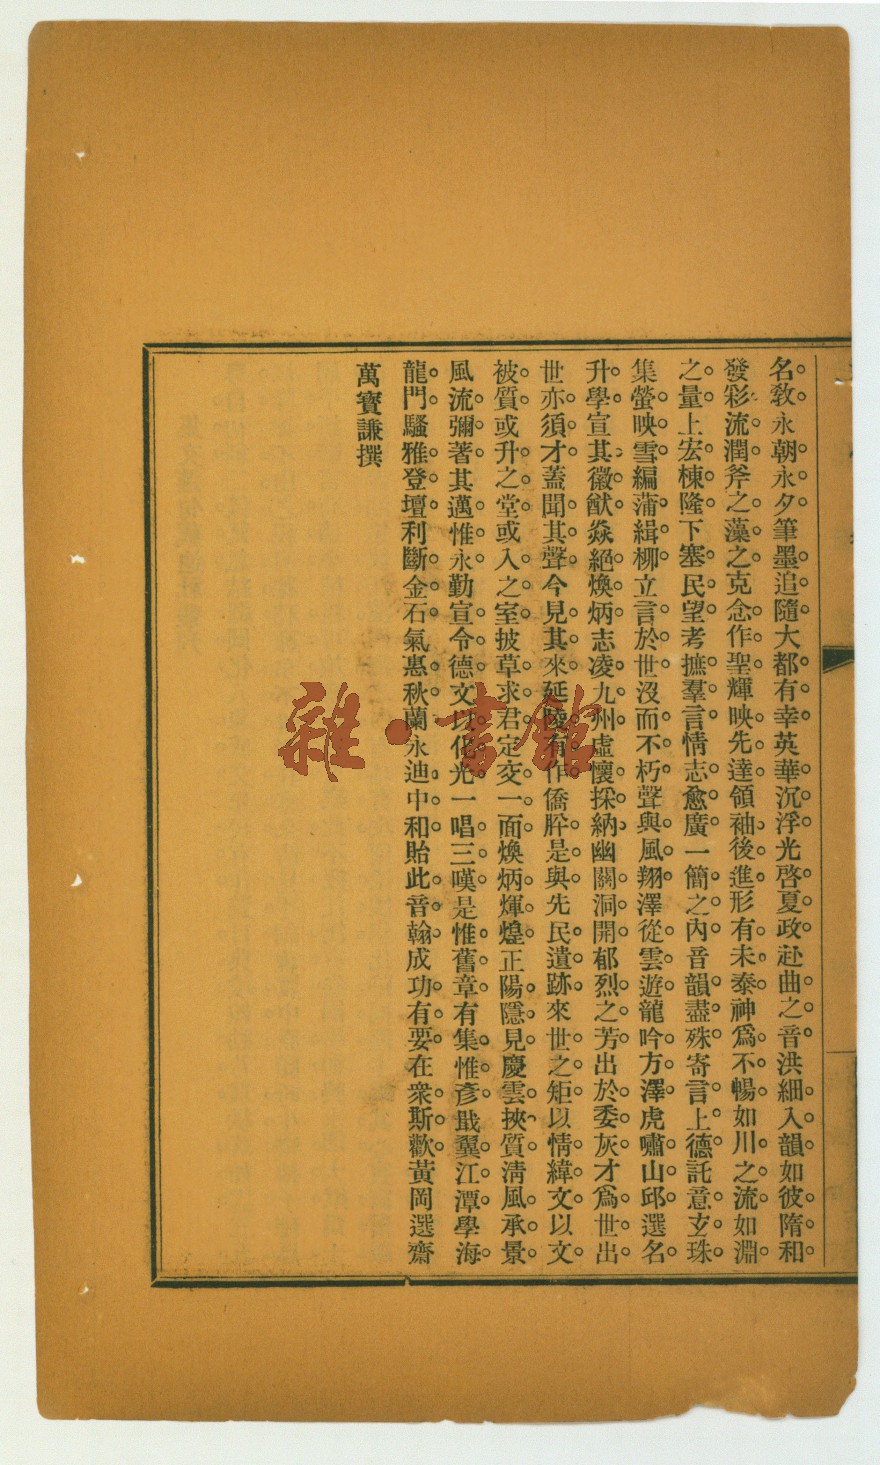 名教永朝永夕筆墨追隨大都有幸英華沉浮光啓夏政赴曲之音洪細入韻如彼隋和
發彩流潤斧之藻之克念作聖輝映先達領袖後進形有未泰神爲不暢如川之流如淵
之量上宏棟隆下塞民望考摭羣言情志愈廣一簡之內音韻盡殊寄言上德託意玄珠
集螢映雪編蒲緝柳立言於世沒而不朽聲與風翔澤從雲遊龍吟方澤虎嘯山邱選名
升學宣其徽猷焱絕煥炳志凌九州虛懷採納幽關洞開郁烈之芳出於委灰才爲世出
世亦須才蓋聞其聲今見其來延陵有作僑肸是與先民遺跡來世之矩以情緯文以文
被質或升之堂或入之室披草求君定交一面煥炳煇煌正陽隱見慶雲挾質淸風承景
風流彌著其邁惟永勤宣令德文以化光一唱三嘆是惟舊章有集惟彥戢翼江潭學海
龍門騷雅登壇利斷金石氣惠秋蘭永迪中和貽此音翰成功有要在衆斯歡黃岡選齋
萬寳謙撰
雜·書館